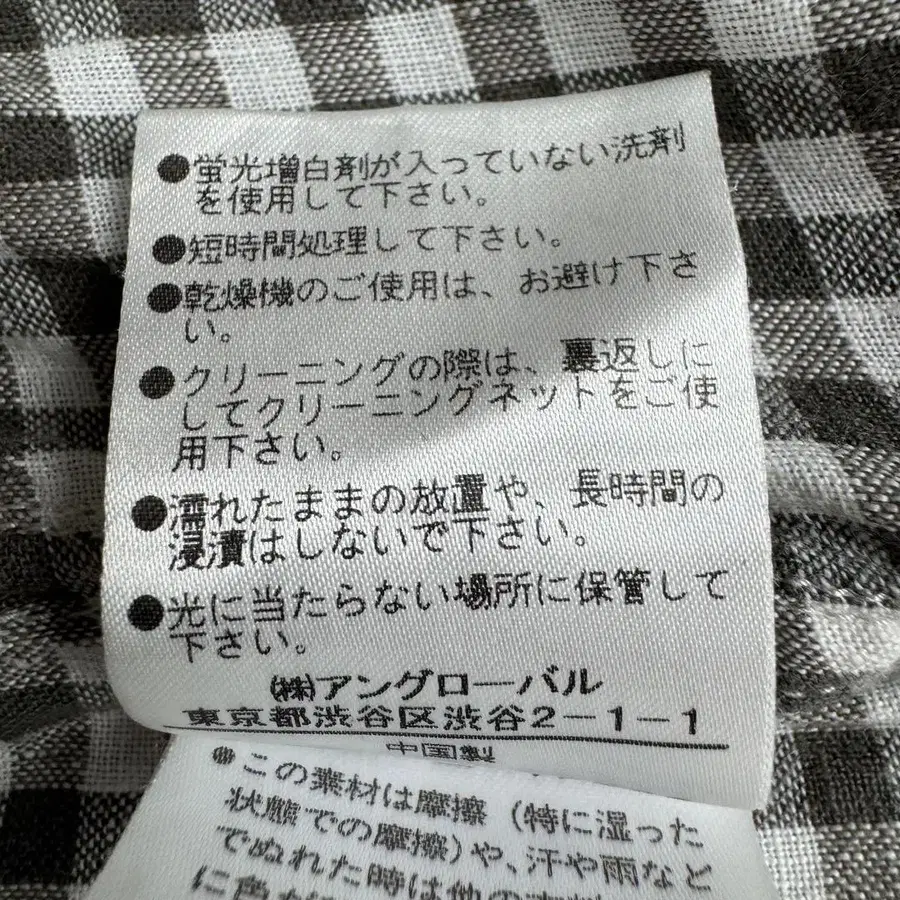 ●蛍光増白剤が入っていない洗剤
を使用して下さい。
●短時間処理して下さい。
●乾燥機のご使用は、お避け下さ
い。
●クリーニングの際は、裏返しに
してクリーニングネットをご使
用下さい。
●濡れたままの放置や、長時間の
浸漬はしないで下さい。
●光に当たらない場所に保管して
下さい。
㈱アングローバル
東京都渋谷区渋谷2-1-1
中国製
●この素材は摩擦(特に湿った
状態での摩擦)や、汗や雨など
でぬれた時は他の
に色が